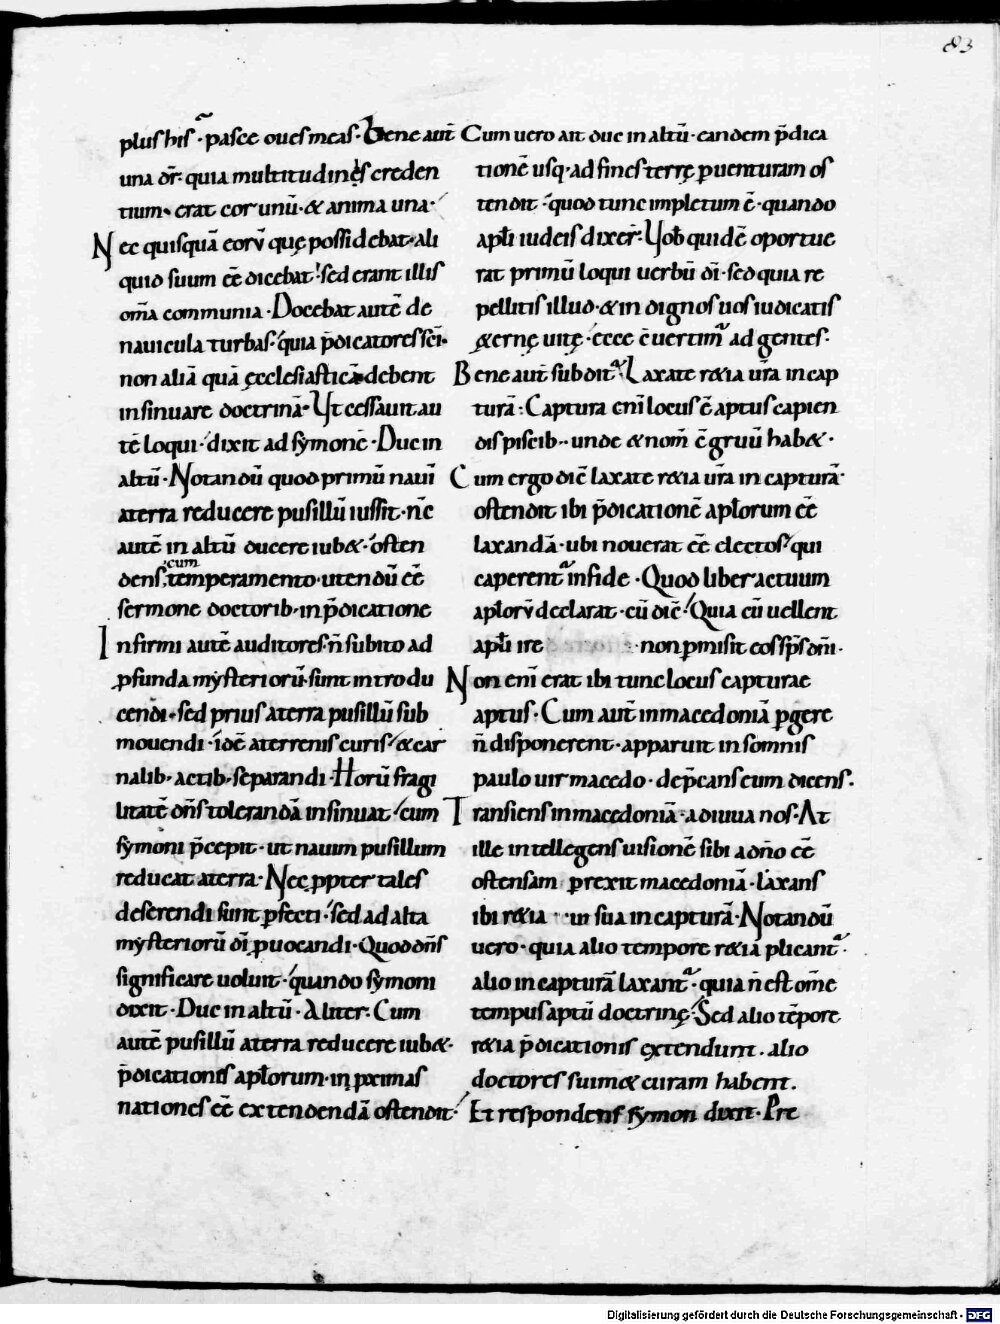 83
plus his · pasce oues meas · Bene aut̄
una dr̄ · quia multitudinẹs creden
tium · erat cor unū · & anima una ·
Nec quisquā eorū quę possidebat · ali
quid suum eē dicebat · sed erant illis
om̄a communia · Docebat autē de
nauicula turbas · quia p̄dicatores sc̄i ·
non aliā quā ęcclesiasticā debent
insinuare doctrinā · Ut cessauit au
tē loqui · dixit ad symonē · Duc in
altū · Notandū quod primū nauī
a terra reducere pusillū iussit · n̄c
autē in altū ducere iub& · osten
dens cum temperamento · utendū eē
sermone doctorib · in p̄dicatione
Infirmi autē auditores · n̄ subito ad
ꝓfunda mysteriorū · sunt introdu
cendi · sed prius a terra pusillū sub
mouendi · id ē a terrenis curis · & car
nalib · actib · separandi · Horū fragi
litatē dn̄s tolerandā insinuat · cum
symoni p̄cepit · ut nauim pusillum
reducat a terra · Nec ꝓpter tales
deserendi sunt ꝑfecti · sed ad alta
mysteriorū dī ꝓuocandi · Quod dn̄s
significare uoluit · quando symoni
dixit · Duc in altū · Aliter · Cum
autē pusillū a terra reducere iub& ·
p̄dicationis apl̄orum · in ꝓximas
nationes eē extendendā ostendit ·
Cum uero ait duc in altū · eandem p̄dica
tionē usq · ad fines terrę ꝑuenturam os
tendit · quod tunc impletum ē · quando
apl̄i iudeis dixer̄ · Uob quidē oportue
rat primū loqui uerbū dī · sed quia re
pellitis illud · & indignos uos iudicatis
&ernę uitę · ecce c̄uertim̄ ad gentes ·
Bene aut̄ subdit̄ · Laxate r&ia ur̄a in cap
turā · Captura enī locus ē aptus capien
dis piscib · · unde & nom̄ ē gruū hab& ·
Cum ergo dic̄ laxate r&ia ur̄a in capturā ·
ostendit ibi p̄dicationē apl̄orum eē
laxandā · ubi nouerat eē electos · qui
caperent̄ in fide · Quod liber actuum
apl̄orū declarat · cū dic̄ · Quia cū uellent
apl̄i ire non ꝑmisit eos sp̄s dn̄i ·
Non enī erat ibi tunc locus capturae
aptus · Cum aut̄ in macedoniā ꝑgere
n̄ disponerent · apparuit in somnis
paulo uir macedo · dep̄cans eum dicens ·
Transiens in macedoniā · adiuua nos · At
ille intellegens uisionē sibi a dn̄o eē
ostensam ꝑrexit macedoniā · laxans
ibi r&ia · · in sua in capturā · Notandū
uero · quia alio tempore r&ia plicant̄ ·
alio in capturā laxant̄ · quia n̄ est om̄e
tempus aptū doctrinę · Sed alio tēpore
r&ia p̄dicationis extendunt · alio
doctores suim& curam habent .
Et respondens symon dixit · Pre
Digitalisierung gefördert durch die Deutsche Forschungsgemeinschaft - DFG